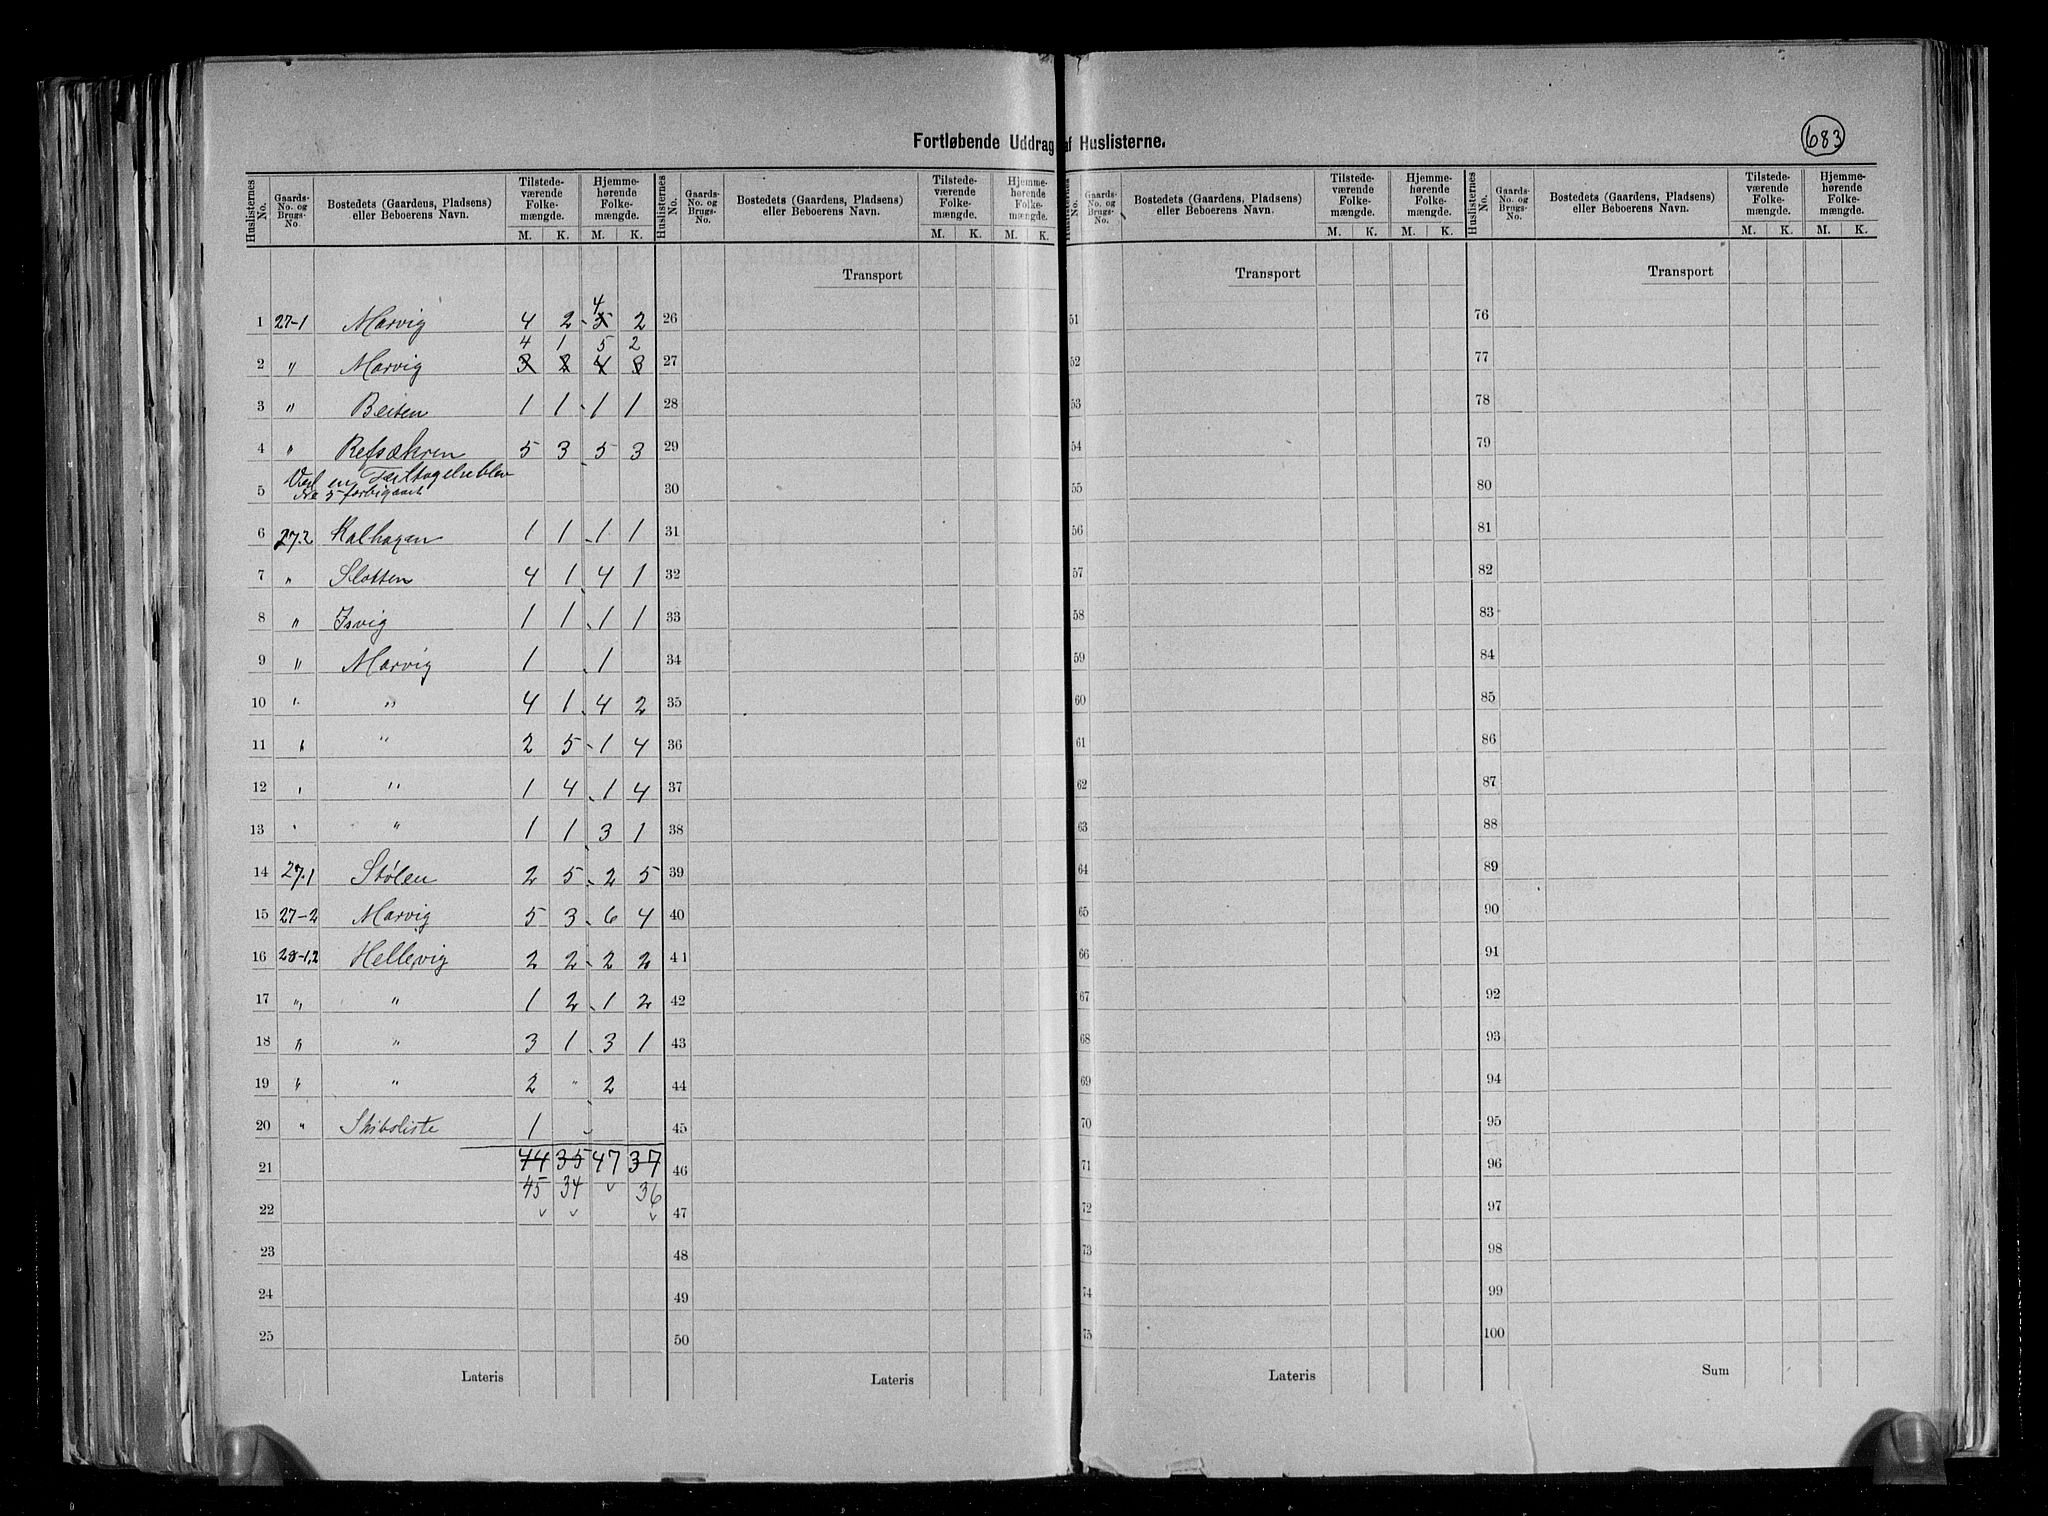 Fortløbende Uddrag af Huslisterne.
683
Huslisternes No. | Gaards-No. og Brugs-No. | Bostedets (Gaardens, Pladsens) eller Beboerens Navn. | Tilstedeværende Folkemængde. M. K. | Hjemmehørende Folkemængde. M. K.
Huslisternes No. | Gaards-No. og Brugs-No. | Bostedets (Gaardens, Pladsens) eller Beboerens Navn. | Tilstedeværende Folkemængde. M. K. | Hjemmehørende Folkemængde. M. K.
Huslisternes No. | Gaards-No. og Brugs-No. | Bostedets (Gaardens, Pladsens) eller Beboerens Navn. | Tilstedeværende Folkemængde. M. K. | Hjemmehørende Folkemængde. M. K.
Huslisternes No. | Gaards-No. og Brugs-No. | Bostedets (Gaardens, Pladsens) eller Beboerens Navn. | Tilstedeværende Folkemængde. M. K. | Hjemmehørende Folkemængde. M. K.
Transport Transport Transport
4
1 27-1 Marvig 4 2 5 2 26 51 76
4 1 5 2
2 " Marvig 3 2 4 3 27 52 77
3 " Beiten 1 1 1 1 28 53 78
4 " Refsækren 5 3 5 3 29 54 79
Ved en Feiltagelse blev
5 No 5 forbigaaet 30 55 80
6 27.2 Kalhagen 1 1 1 1 31 56 81
7 " Slotten 4 1 4 1 32 57 82
8 " Isvig 1 1 1 1 33 58 83
9 " Marvig 1 1 34 59 84
10 " " 4 1 4 2 35 60 85
11 " " 2 5 1 4 36 61 86
12 " " 1 4 1 4 37 62 87
13 " " 1 1 3 1 38 63 88
14 27.1 Stølen 2 5 2 5 39 64 89
15 27-2 Marvig 5 3 6 4 40 65 90
16 28-1,2 Hellevig 2 2 2 2 41 66 91
17 " " 1 2 1 2 42 67 92
18 " " 3 1 3 1 43 68 93
19 " " 2 " 2 44 69 94
20 " Skibsliste 1 45 70 95
21 44 35 47 37 46 71 96
45 34 36
22 47 72 97
23 48 73 98
24 49 74 99
25 50 75 100
Lateris Lateris Lateris Sum